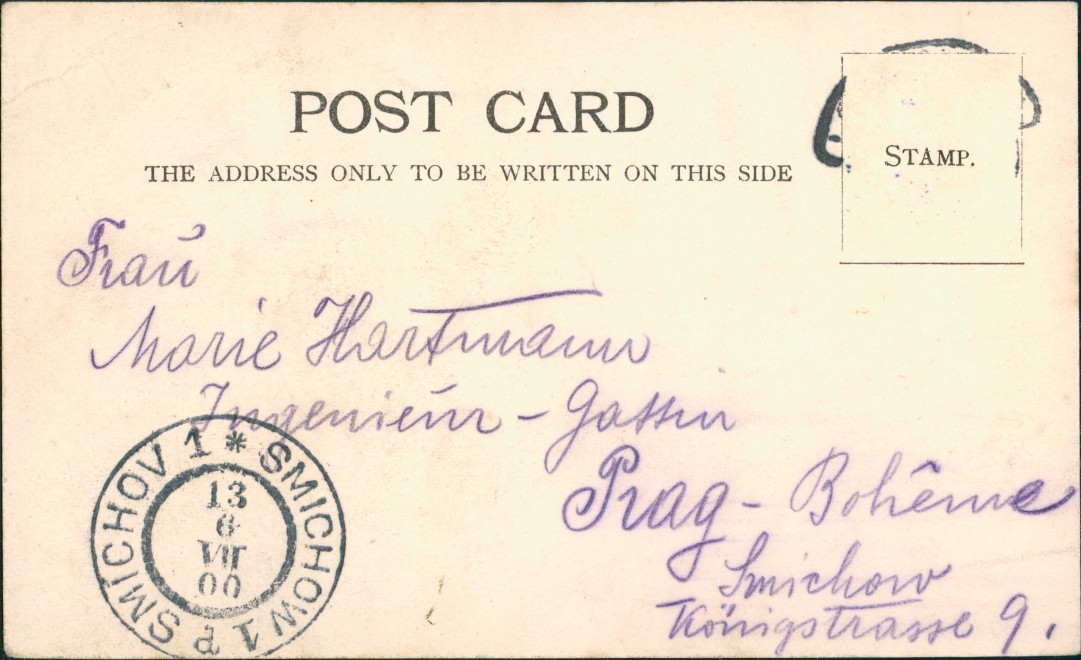 POST CARD
THE ADDRESS ONLY TO BE WRITTEN ON THIS SIDE
STAMP.
Frau
Marie Hartmann
Ingenieur - Gattin
Prag - Bohême
Smichow
Königstrasse 9.
SMICHOV 1 * SMICHOW 1
13
6
VII
00